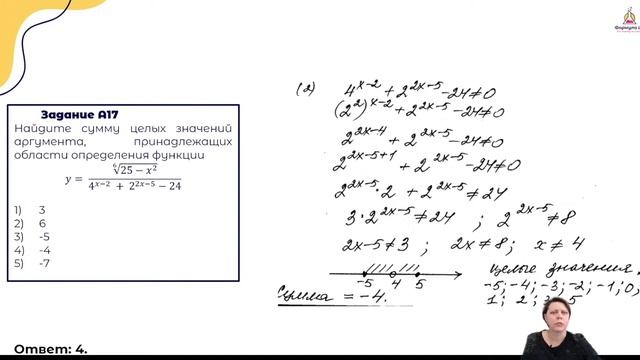 Формула
Задание А17
Найдите сумму целых значений
аргумента, принадлежащих
области определения функции
y = ⁶√(25 − x²) / (4^(x−2) + 2^(2x−5) − 24)
1) 3
2) 6
3) -5
4) -4
5) -7
Ответ: 4.
(2) 4^(x−2) + 2^(2x−5) − 24 ≠ 0
(2²)^(x−2) + 2^(2x−5) − 24 ≠ 0
2^(2x−4) + 2^(2x−5) − 24 ≠ 0
2^(2x−5+1) + 2^(2x−5) − 24 ≠ 0
2^(2x−5) · 2 + 2^(2x−5) ≠ 24
3 · 2^(2x−5) ≠ 24 ; 2^(2x−5) ≠ 8
2x−5 ≠ 3 ; 2x ≠ 8 ; x ≠ 4
-5 4 5
Сумма = −4.
целые значения:
-5; -4; -3; -2; -1; 0;
1; 2; 3 5